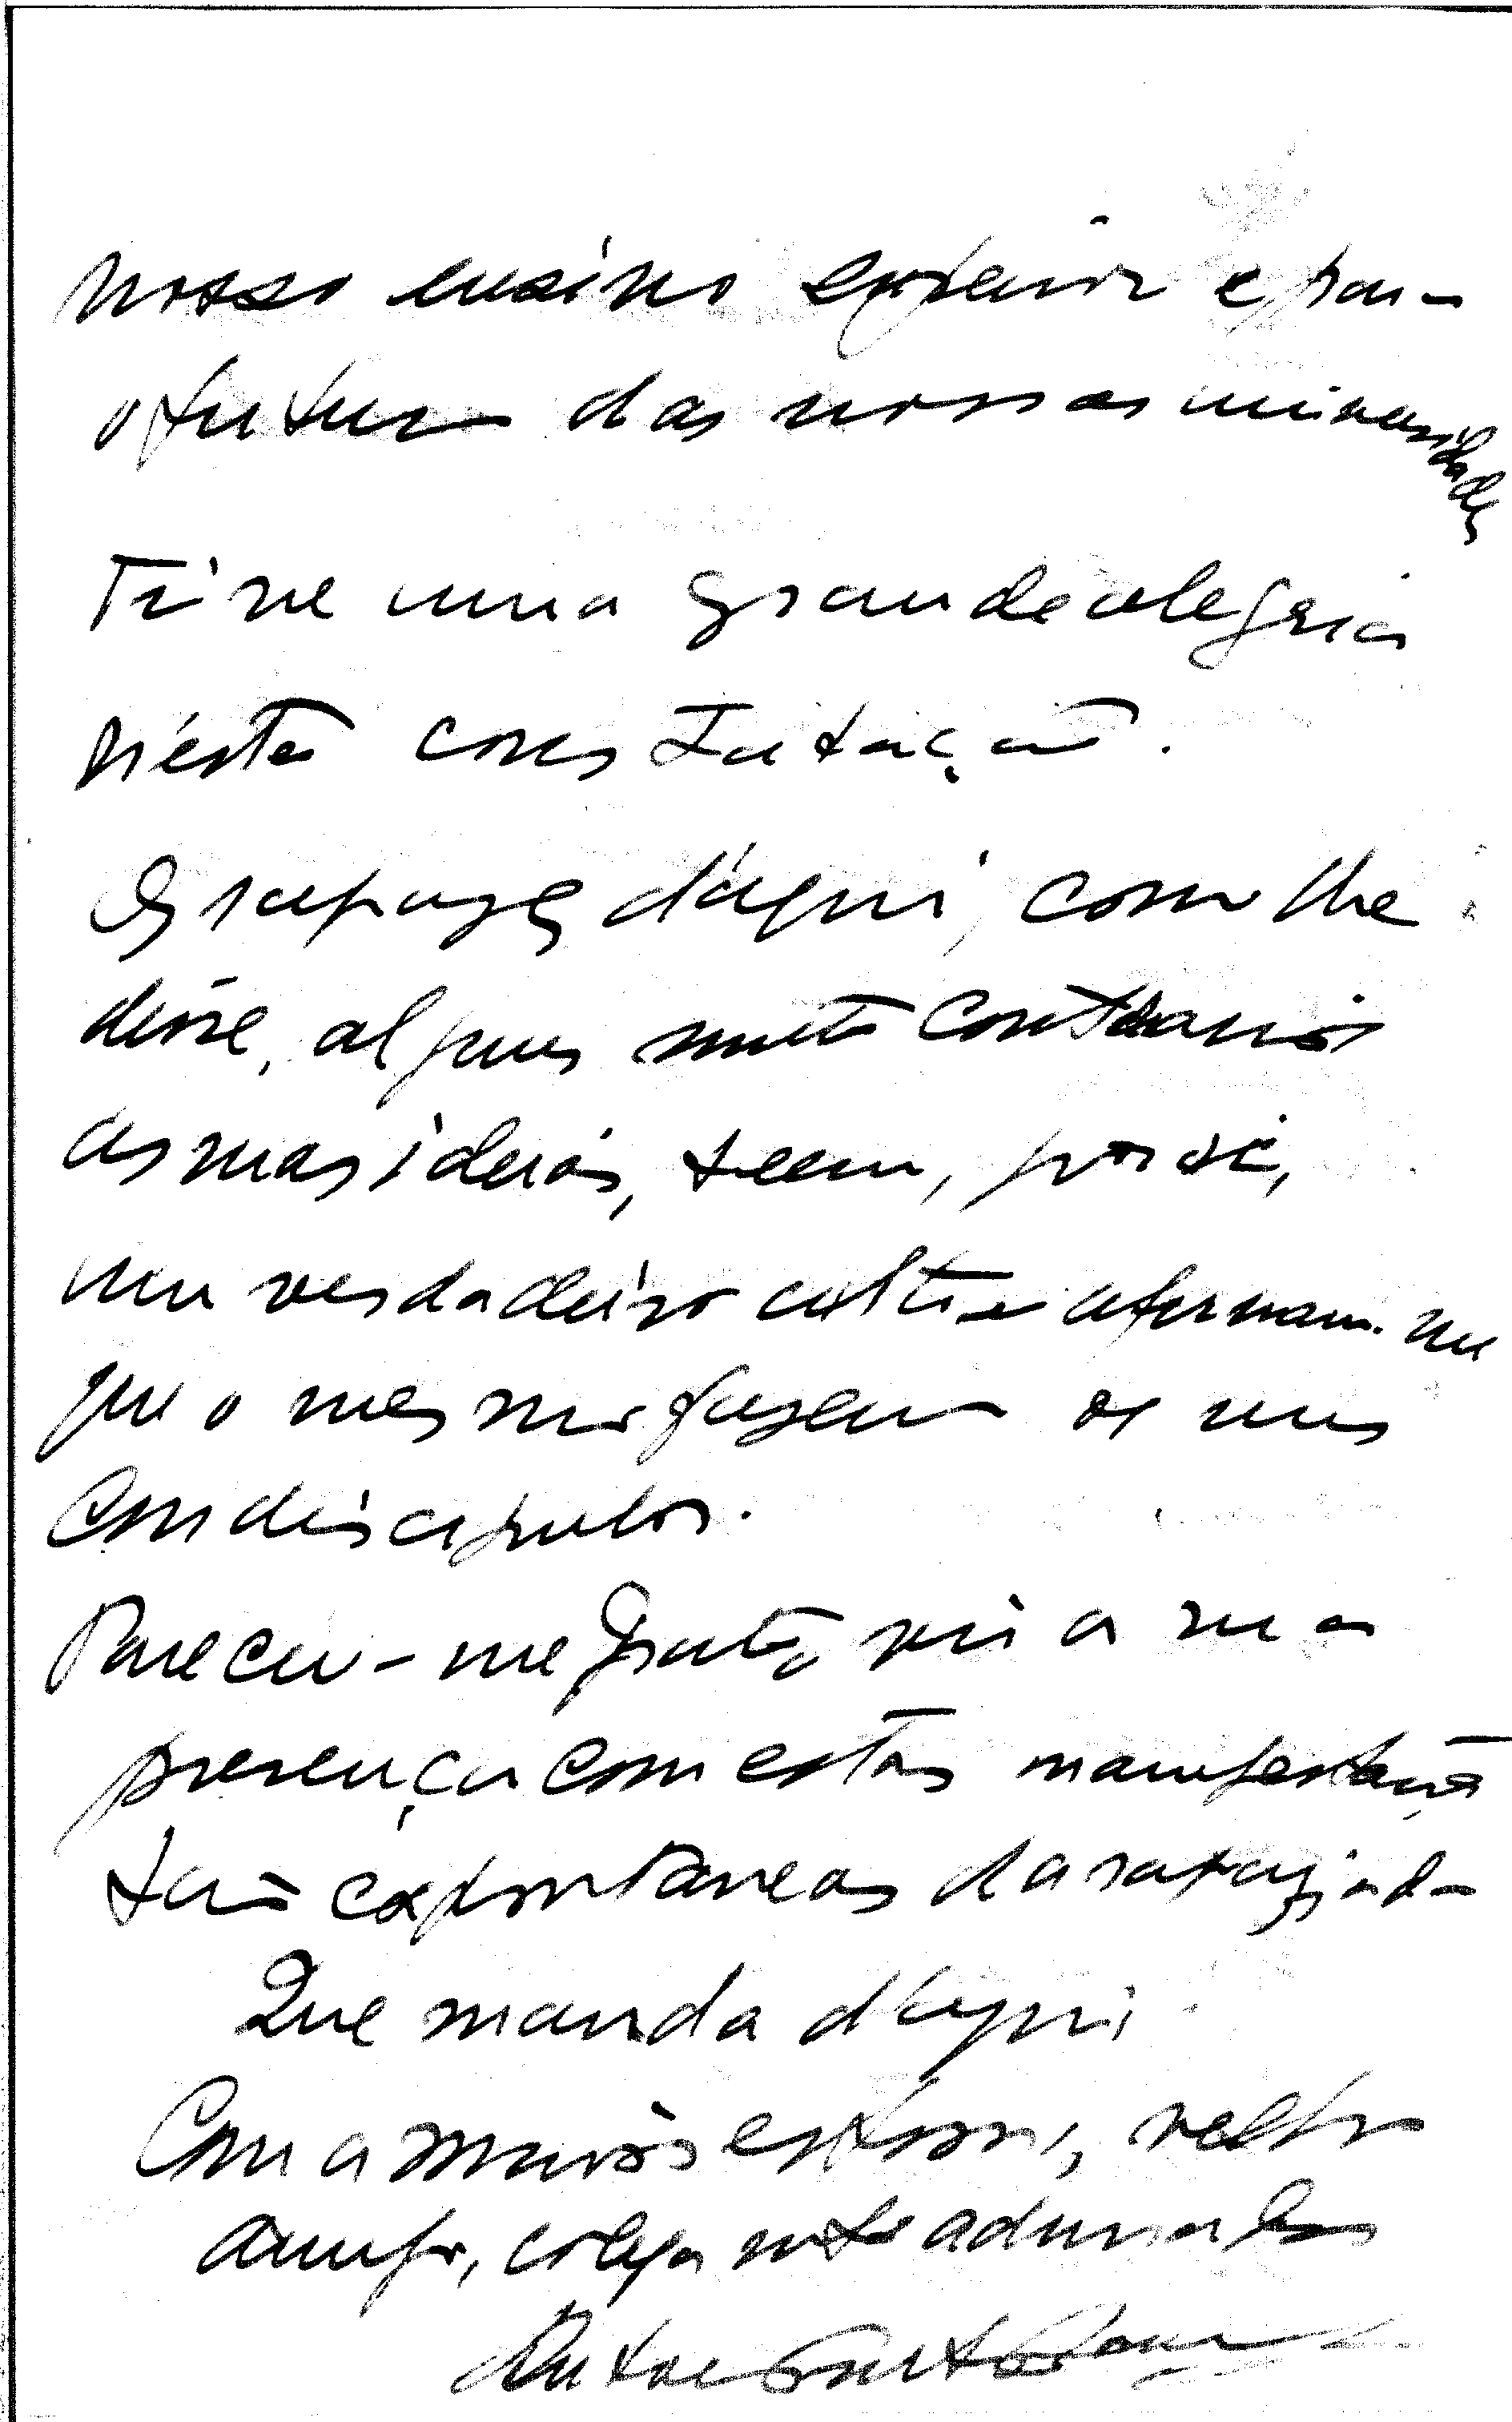 nosso ensino superior e para
o futuro das nossas universidades
Tive uma grande alegria
n'esta constatação.
Os rapazes d'aqui, como lhe
disse, alguns muito contrarios
as suas ideias, teem, por si,
um verdadeiro culto e afirmam-me
que o mesmo fazem os seus
condiscipulos.
Pareceu-me grato, vir a sua
presença com estas manifestações
tão expontaneas da rapaziada
Que manda d'aqui
Com a maior estima, velho
amigo, colega mto admirador